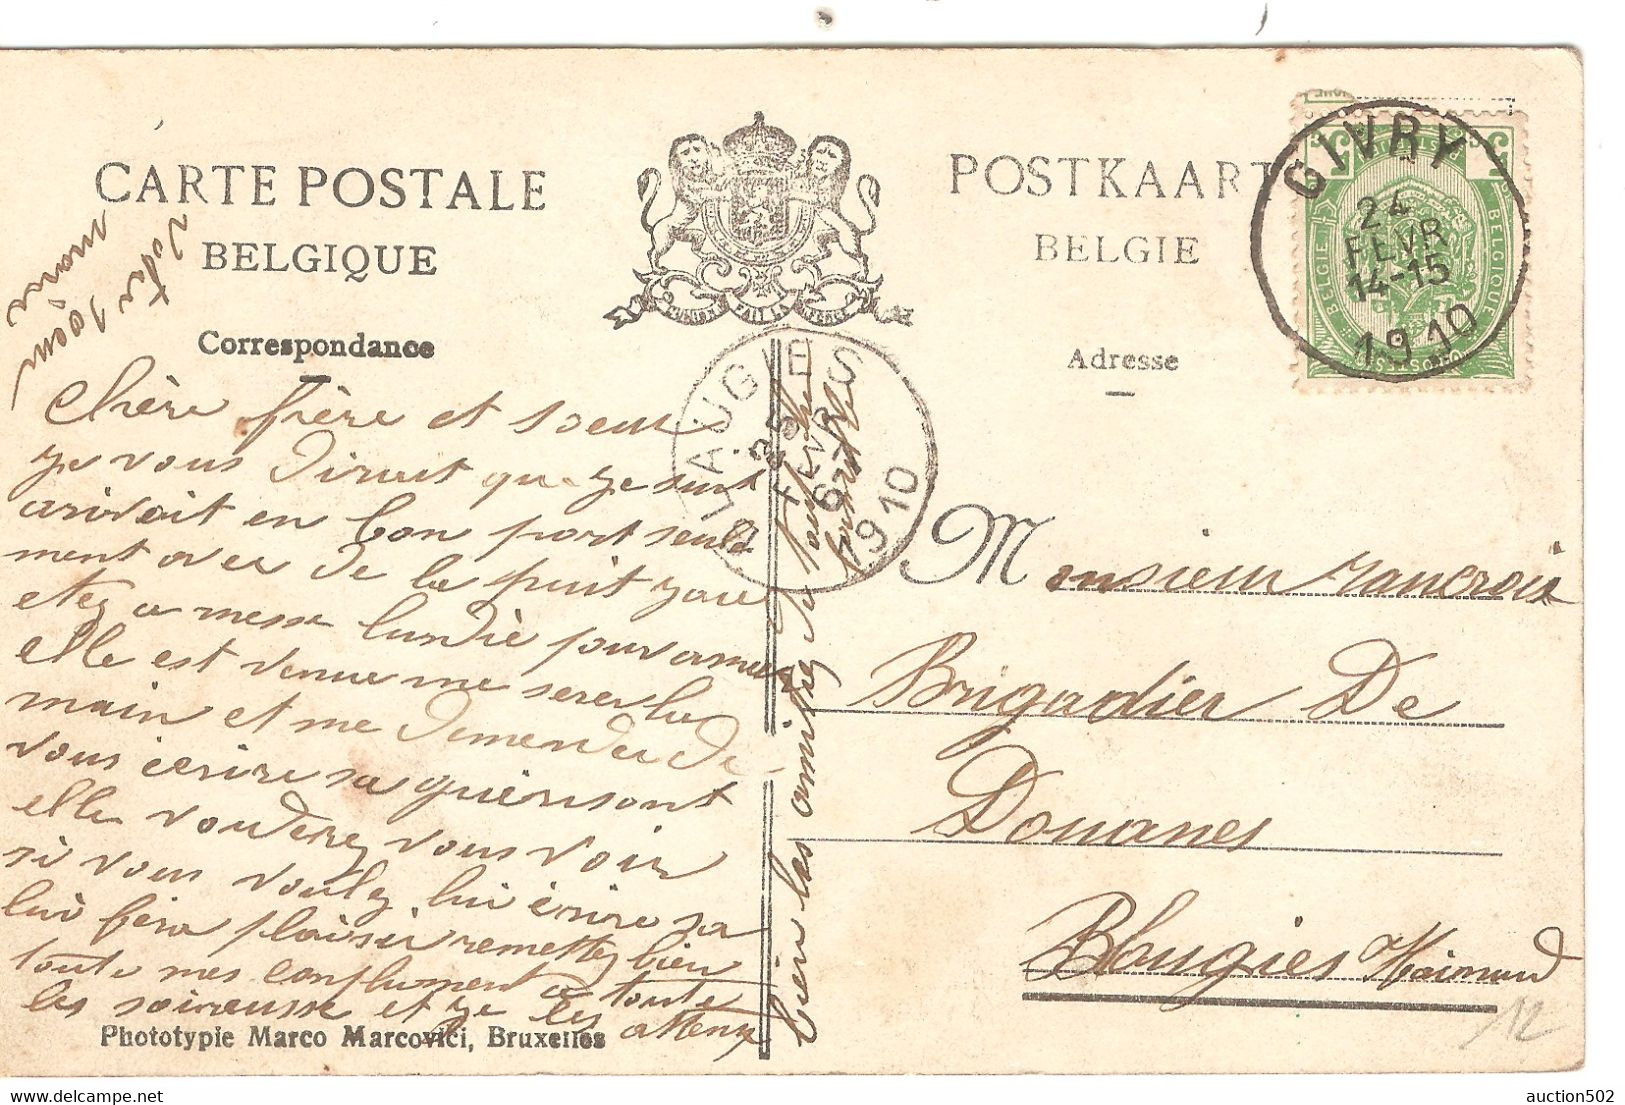 CARTE POSTALE
BELGIQUE
Correspondance
POSTKAART
BELGIE
Adresse
GIVRY
24
FEVR
14-15
1910
BELGIE
BELGIQUE
FAIT LA FORCE
BLAUGIES
25
FEVR
1910
Chère frère et soeur
je vous dirait que je suit
arivait en bon port seule
ment avec de la
etez a messe lundié
elle est venue me serer la
main et me demender de
vous écrire sa guérisont
elle vouderez vous voir
si vous voulez lui écrire sa
lui fera plaisir remettez bien
toute mes conpliment a toute
les et je les
bien les
Votre soeur
maria
Monsieur
Brigadier De
Douanes
Blaugies Hainaud
12
Phototypie Marco Marcovici, Bruxelles
auction502